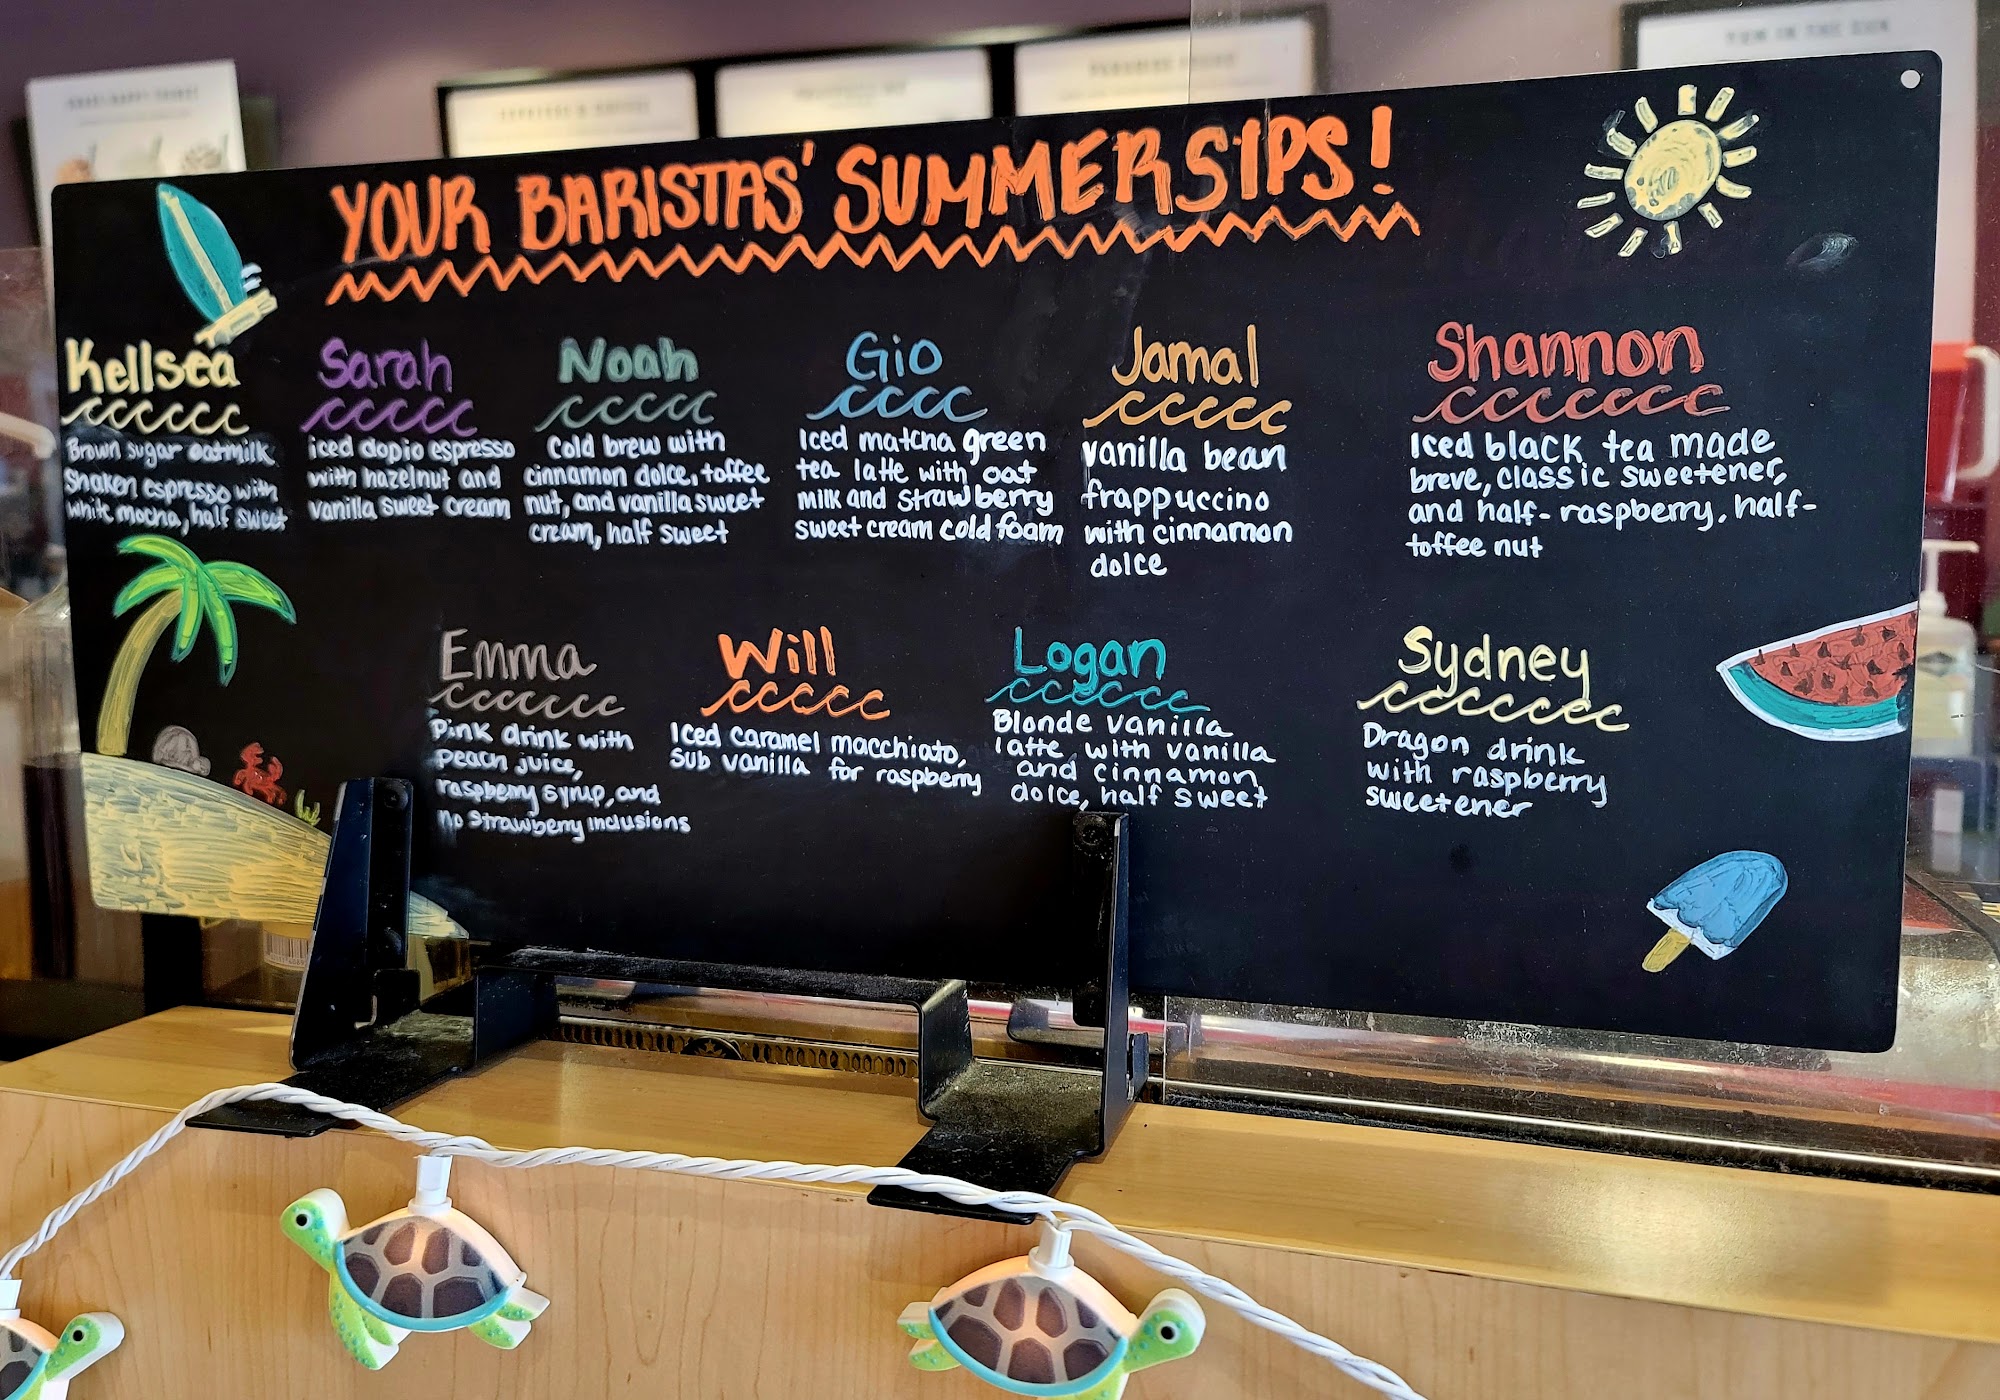 YOUR BARISTAS' SUMMER SIPS!
Kellsea
Brown sugar oatmilk
Shaken espresso with
white mocha, half sweet
Sarah
iced dopio espresso
with hazelnut and
vanilla sweet cream
Noah
Cold brew with
cinnamon dolce, toffee
nut, and vanilla sweet
cream, half sweet
Gio
Iced matcha green
tea latte with oat
milk and strawberry
sweet cream cold foam
Jamal
vanilla bean
frappuccino
with cinnamon
dolce
Shannon
Iced black tea made
breve, classic sweetener,
and half-raspberry, half-
toffee nut
Emma
Pink drink with
peach juice,
raspberry syrup, and
no strawberry inclusions
Will
Iced caramel macchiato,
sub vanilla for raspberry
Logan
Blonde vanilla
latte, with vanilla
and cinnamon
dolce, half sweet
Sydney
Dragon drink
with raspberry
sweetener